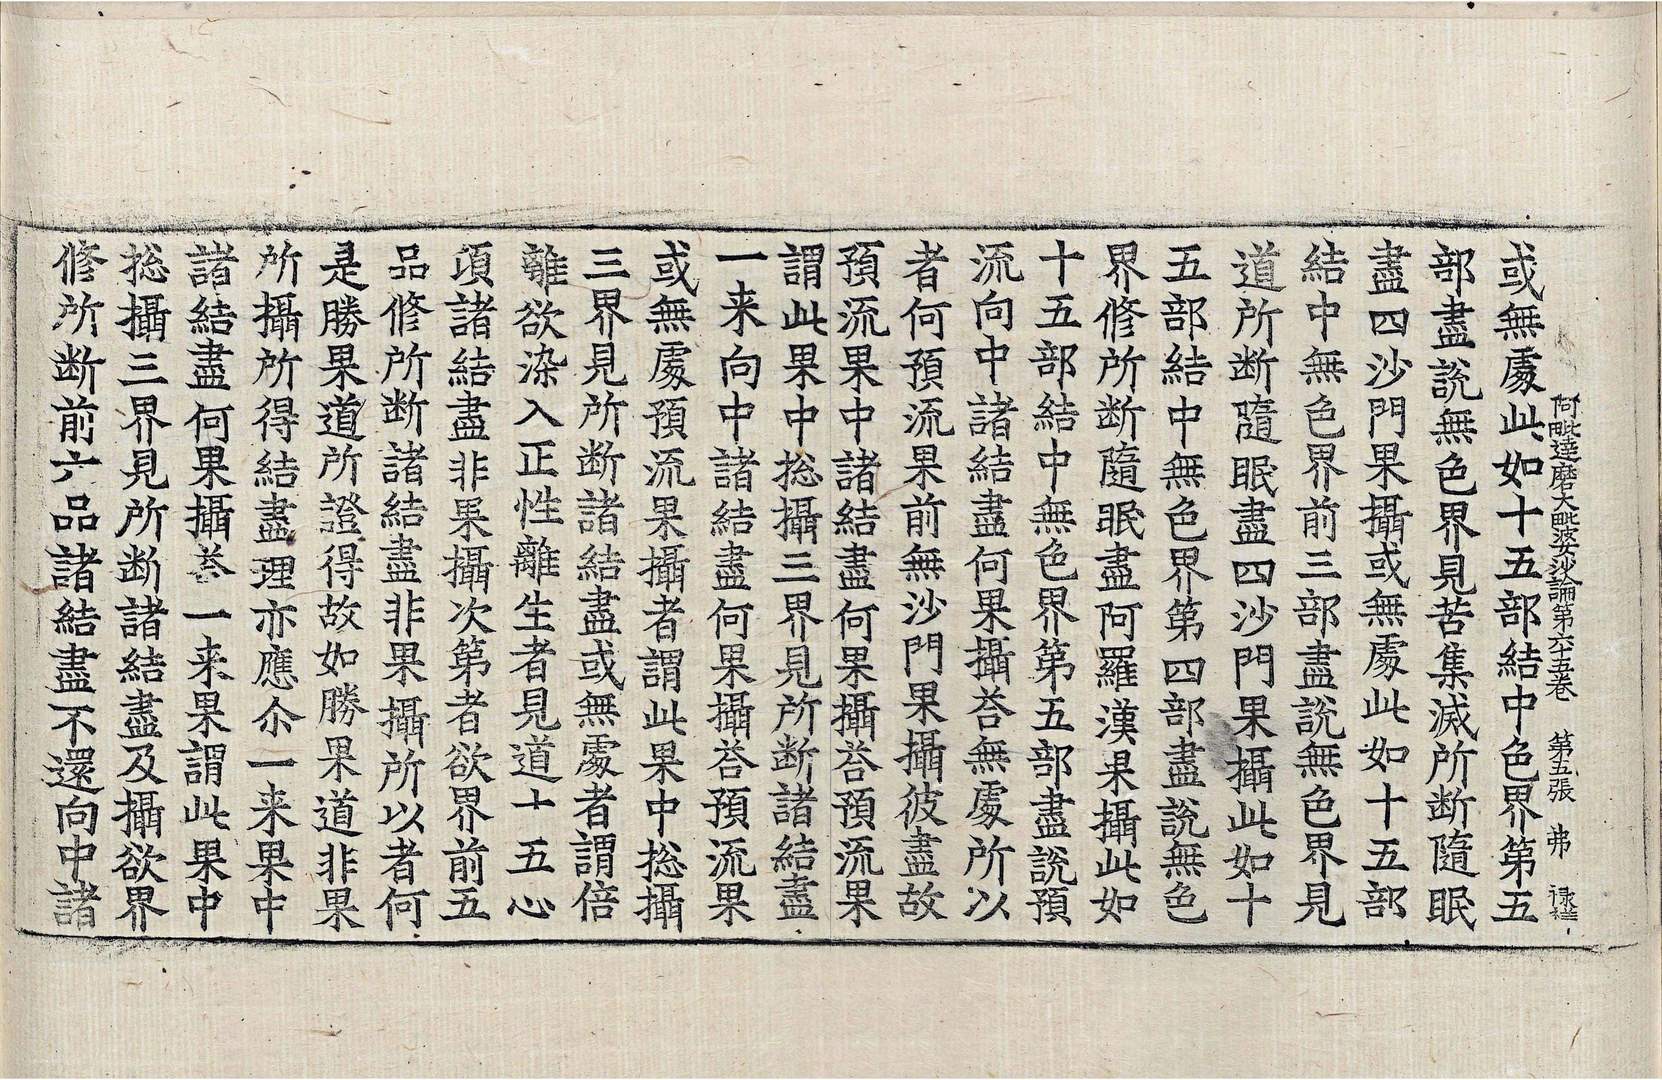 阿毗達磨大毗婆沙論第六十五卷　第五張　弗　祿祥
或無處此如十五部結中色界第五
部盡說無色界見苦集滅所断隨眠
盡四沙門果攝或無處此如十五部
結中無色界前三部盡說無色界見
道所断隨眠盡四沙門果攝此如十
五部結中無色界第四部盡說無色
界修所断隨眠盡阿羅漢果攝此如
十五部結中無色界第五部盡說預
流向中諸結盡何果攝荅無處所以
者何預流果前無沙門果攝彼盡故
預流果中諸結盡何果攝荅預流果
謂此果中捴攝三界見所断諸結盡
一来向中諸結盡何果攝荅預流果
或無處預流果攝者謂此果中捴攝
三界見所断諸結盡或無處者謂倍
離欲染入正性離生者見道十五心
項諸結盡非果攝次第者欲界前五
品修所断諸結盡非果攝所以者何
是勝果道所證得故如勝果道非果
所攝所得結盡理亦應尒一来果中
諸結盡何果攝荅一来果謂此果中
捴攝三界見所断諸結盡及攝欲界
修所断前六品諸結盡不還向中諸